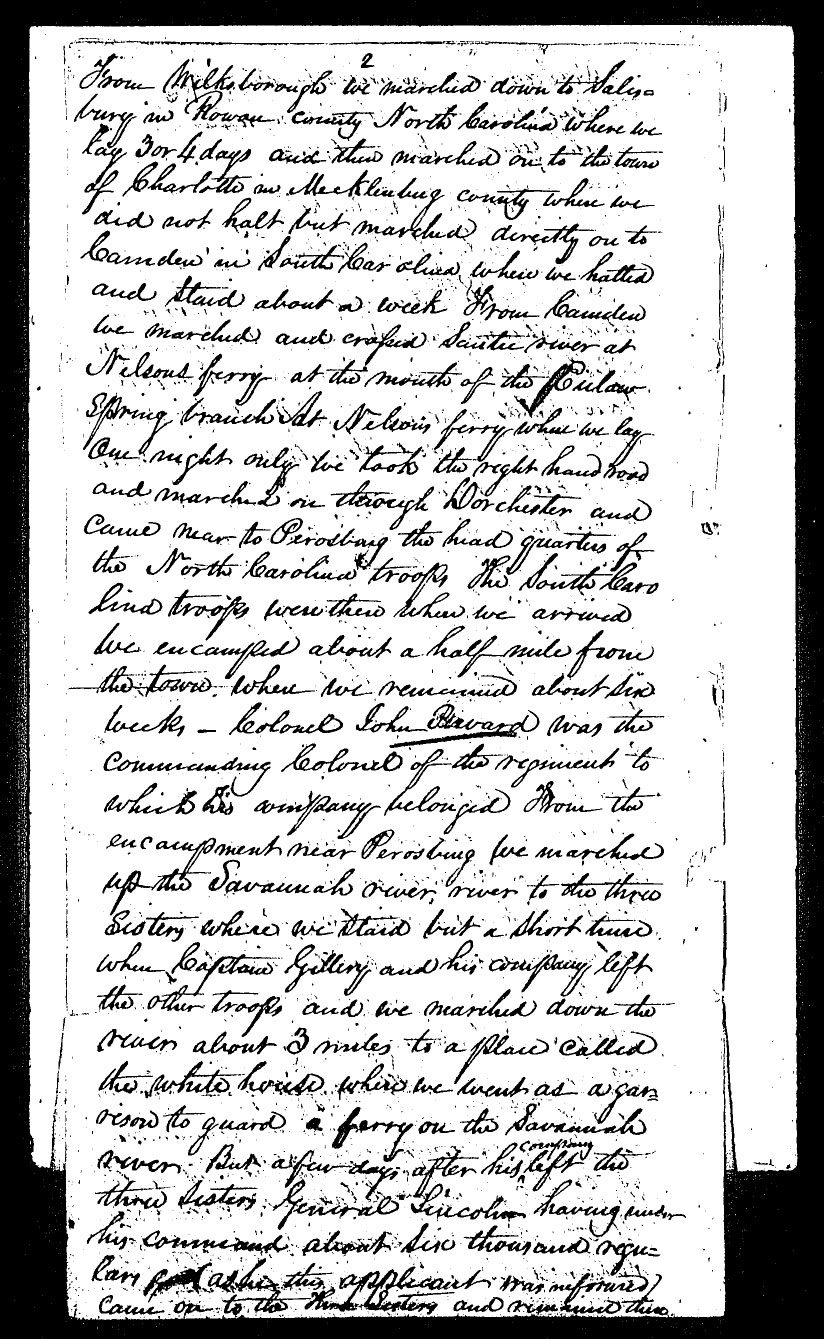 2
From Wilksborough we marched down to Salis=
bury in Rowan county North Carolina where we
lay 3 or 4 days and then marched on to the town
of Charlotte in Mecklenburg county where we
did not halt but marched directly on to
Camden in South Carolina where we halted
and staid about a week From Camden
we marched and crossed Santee river at
Nelsons ferry at the mouth of the Eutaw
Spring branch At Nelsons ferry where we lay
One night only we took the right hand road
and marched on through Dorchester and
came near to Perosburg the head quarters of
the North Carolina troops The South Caro
lina troops were there when we arrived
We encamped about a half mile from
the town where we remained about six
weeks – Colonel John was the
commanding Colonel of the regiment to
which his company belonged From the
encampment near Perosburg we marched
up the Savannah river, river to the three
Sisters where we staid but a short time
when Captain Gillery and his company left
the other troops and we marched down the
river about 3 miles to a place called
the white house where we went as a gar=
rison to guard a ferry on the Savannah
river. But a few days after his company left the
three Sisters General Lincoln having under
his command about six thousand regu=
lars as he this applicant was informed)
came on to the three Sisters and remained there